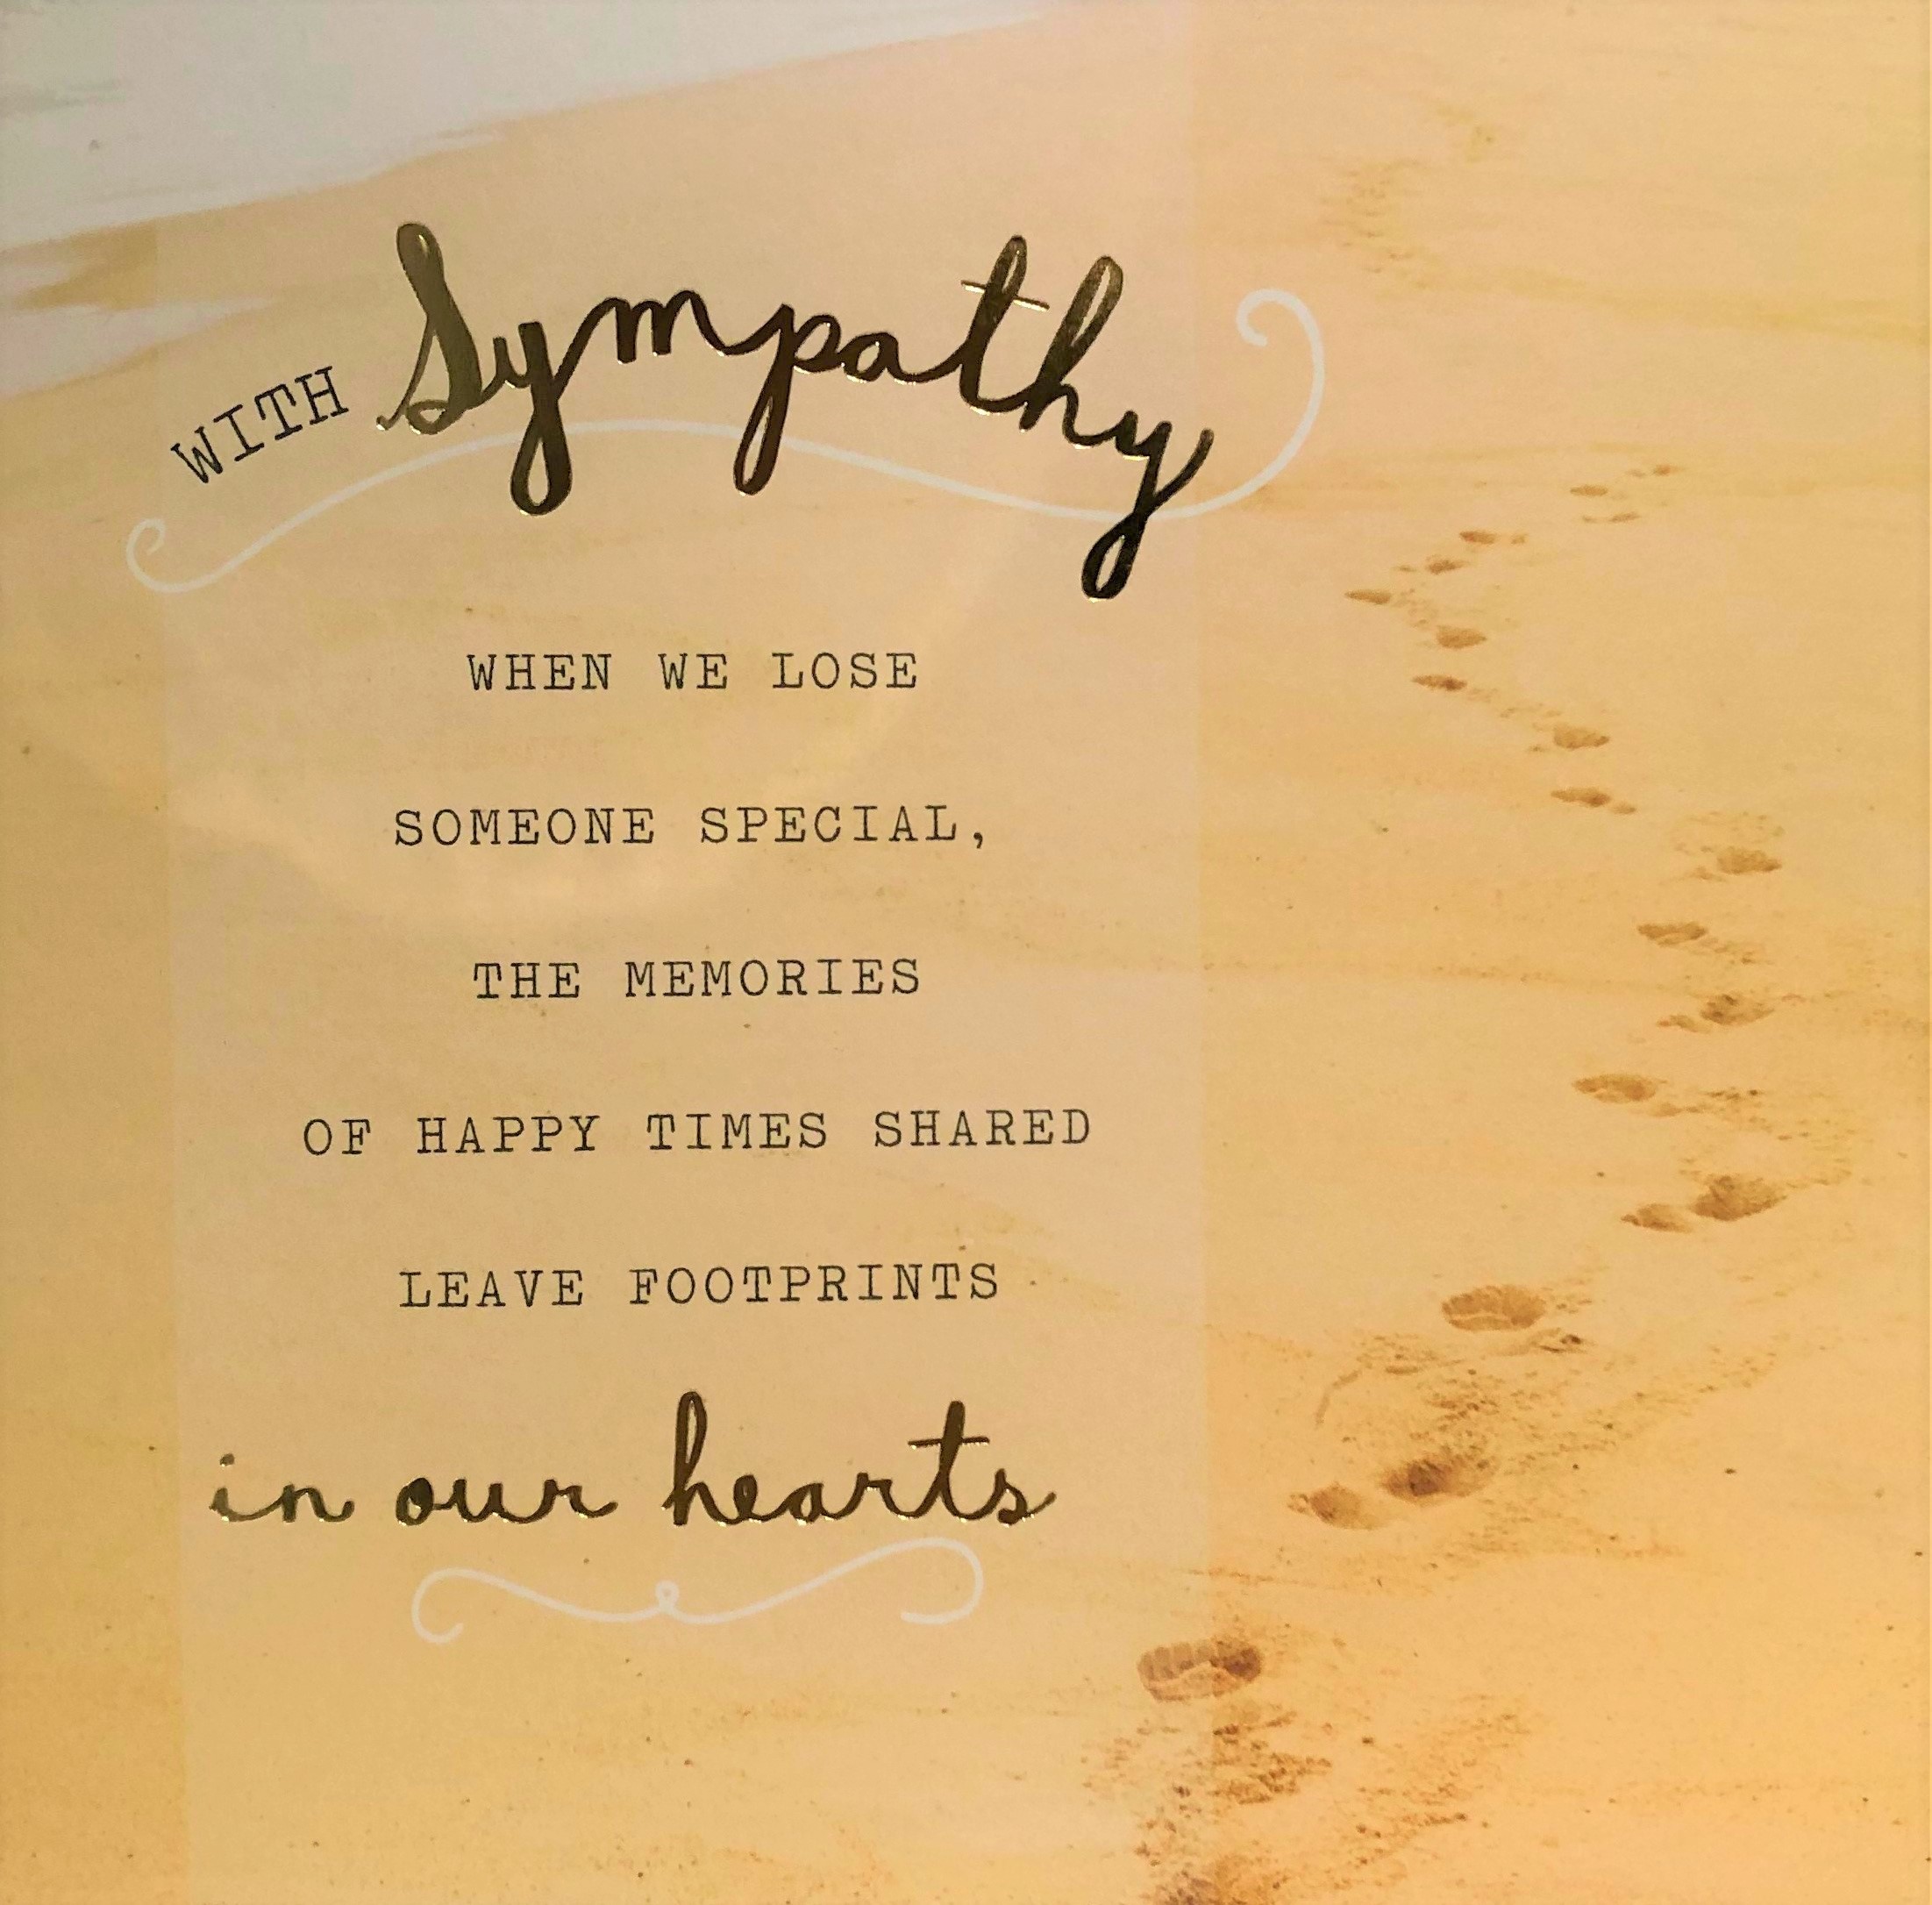 WITH Sympathy
WHEN WE LOSE
SOMEONE SPECIAL,
THE MEMORIES
OF HAPPY TIMES SHARED
LEAVE FOOTPRINTS
in our hearts